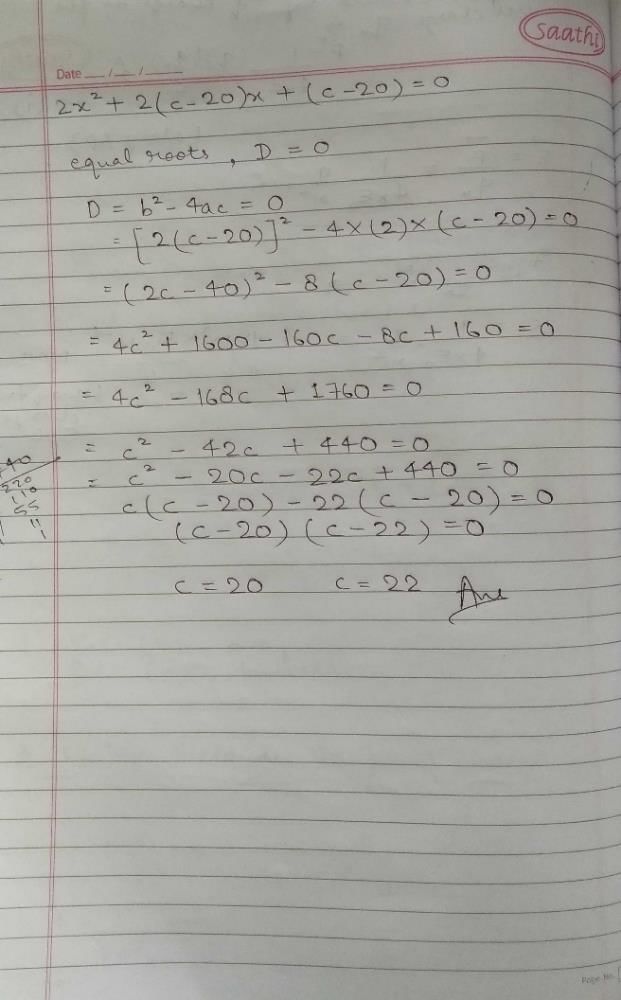 Saathi
Date __/__/____
2x² + 2(c-20)x + (c-20) = 0
equal roots, D = 0
D = b² - 4ac = 0
= [2(c-20)]² - 4×(2)×(c-20) = 0
= (2c-40)² - 8(c-20) = 0
= 4c² + 1600 - 160c - 8c + 160 = 0
= 4c² - 168c + 1760 = 0
= c² - 42c + 440 = 0
= c² - 20c - 22c + 440 = 0
c(c-20) - 22(c-20) = 0
(c-20)(c-22) = 0
c = 20 c = 22 Ans
40
220
110
55
11
1
Page No.